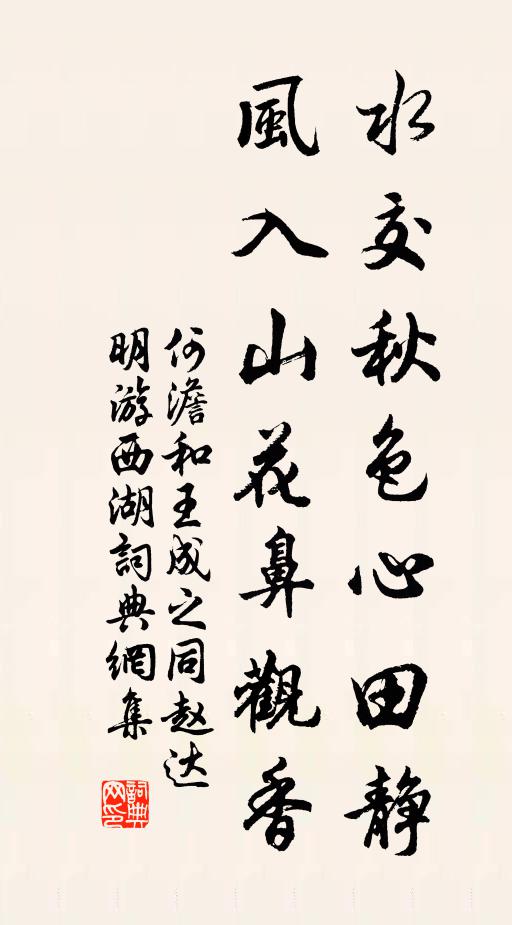 水交秋色心田静
風入山花鼻觀香
何澹和王成之同赵达
明游西湖詞典網集
詞典网印